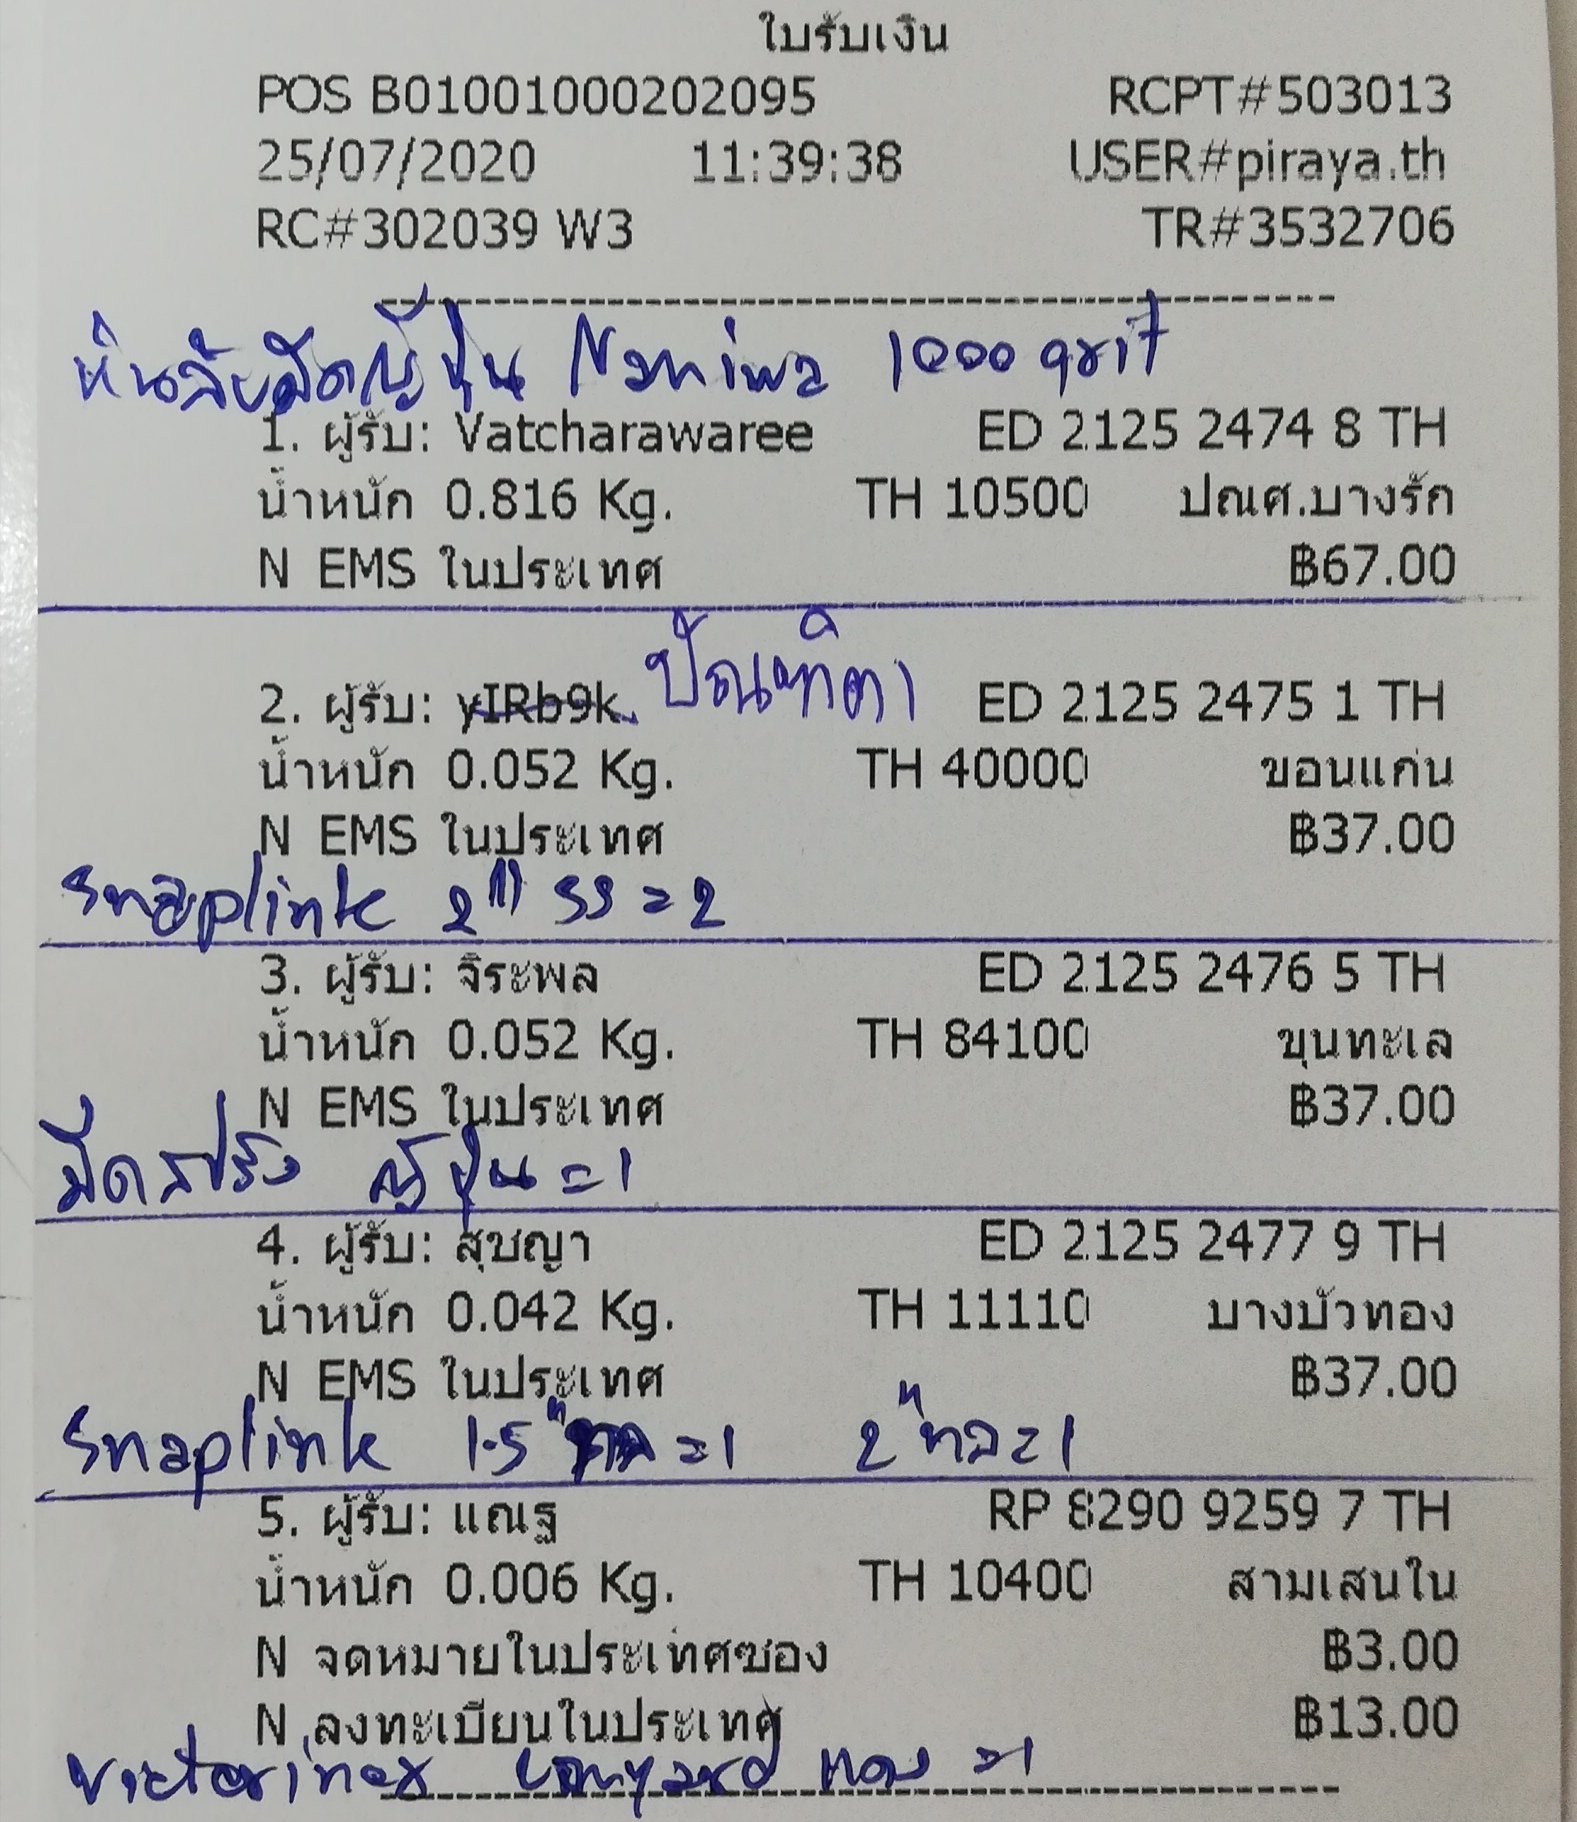 ใบรับเงิน
POS B01001000202095 RCPT#503013
25/07/2020 11:39:38 USER#piraya.th
RC#302039 W3 TR#3532706
หินลับมีดญี่ปุ่น Naniwa 1000 grit
1. ผู้รับ: Vatcharawaree ED 2125 2474 8 TH
น้ำหนัก 0.816 Kg. TH 10500 ปณศ.บางรัก
N EMS ในประเทศ ฿67.00
2. ผู้รับ: yIRb9k ปัณฑิตา ED 2125 2475 1 TH
น้ำหนัก 0.052 Kg. TH 40000 ขอนแก่น
N EMS ในประเทศ ฿37.00
Snaplink 2" SS = 2
3. ผู้รับ: จิระพล ED 2125 2476 5 TH
น้ำหนัก 0.052 Kg. TH 84100 ขุนทะเล
N EMS ในประเทศ ฿37.00
มีดสปริง ญี่ปุ่น = 1
4. ผู้รับ: สุชญา ED 2125 2477 9 TH
น้ำหนัก 0.042 Kg. TH 11110 บางบัวทอง
N EMS ในประเทศ ฿37.00
Snaplink 1.5" = 1 2" = 1
5. ผู้รับ: แณฐ RP 8290 9259 7 TH
น้ำหนัก 0.006 Kg. TH 10400 สามเสนใน
N จดหมายในประเทศซอง ฿3.00
N ลงทะเบียนในประเทศ ฿13.00
Victorinox Lanyard = 1